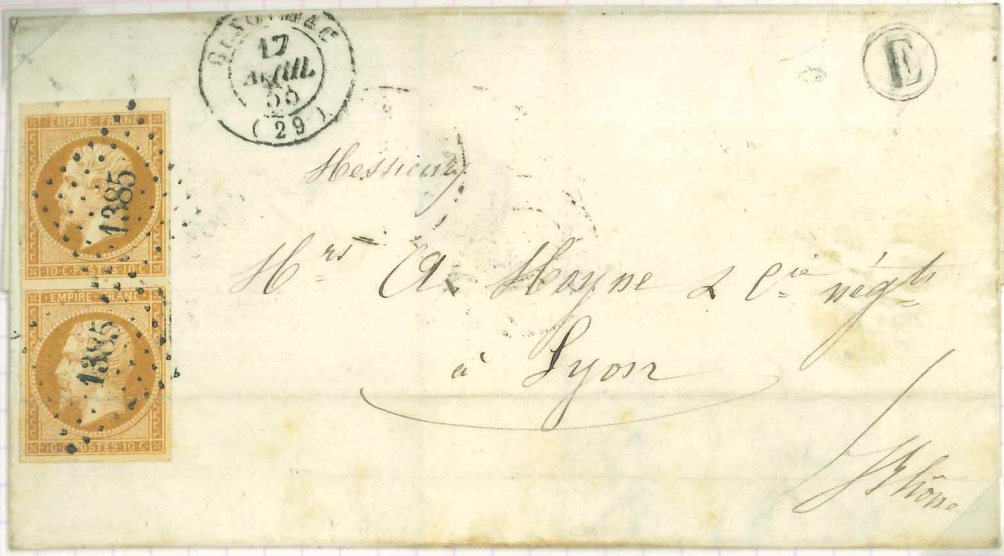 GENOLHAC
17
AVRIL
55
(29)
E
EMPIRE FRANC
1385
10·C·POSTES 10·C
EMPIRE FRANC
1385
10·C·POSTES 10·C
Messieurs
Mrs A. Hoyne & Cie négts
à Lyon
Rhône